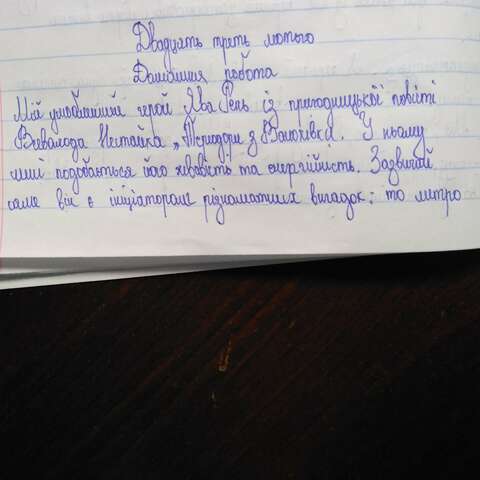 Двадцять третє лютого
Домашня робота
Мій улюблений герой Ява Рень із пригодницької повісті
Всеволода Нестайка „Тореадори з Васюківки. У ньому
мені подобається його жвавість та енергійність. Зазвичай
саме він є ініціатором різноматних вигадок: то метро